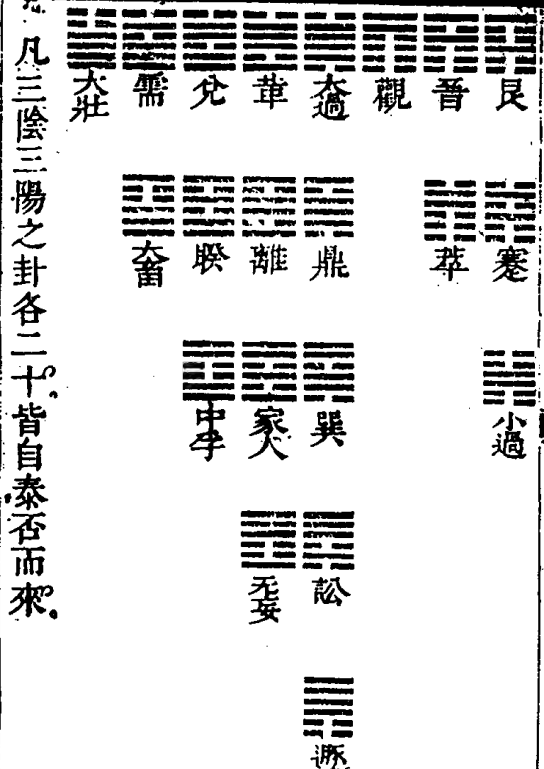 艮
蹇
小過
晉
萃
觀
大過
鼎
巽
訟
遯
革
離
家人
无妄
兌
睽
中孚
需
大畜
大壯
凡三陰三陽之卦各二十。皆自泰否而來。